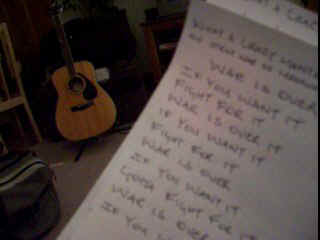 WHAT A CRAZY
WAR IS OVER
IF YOU WANT IT
FIGHT FOR IT
WAR IS OVER IT
IF YOU WANT IT
FIGHT FOR IT
WAR IS OVER
IF YOU WANT IT
GOTTA FIGHT FOR IT
WAR IS OVER
IF YOU W